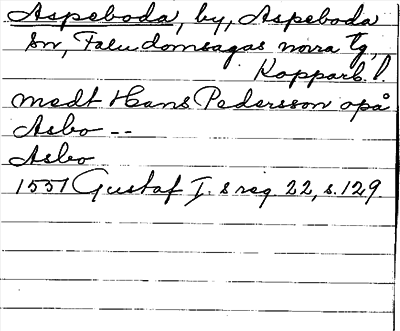 Aspeboda, by, Aspeboda
sn, Falu domsagas norra tg,
Kopparb. l.
medt Hans Pedersson opå
Asbo --
Asbo
1551 Gustaf I:s reg 22, s. 129.